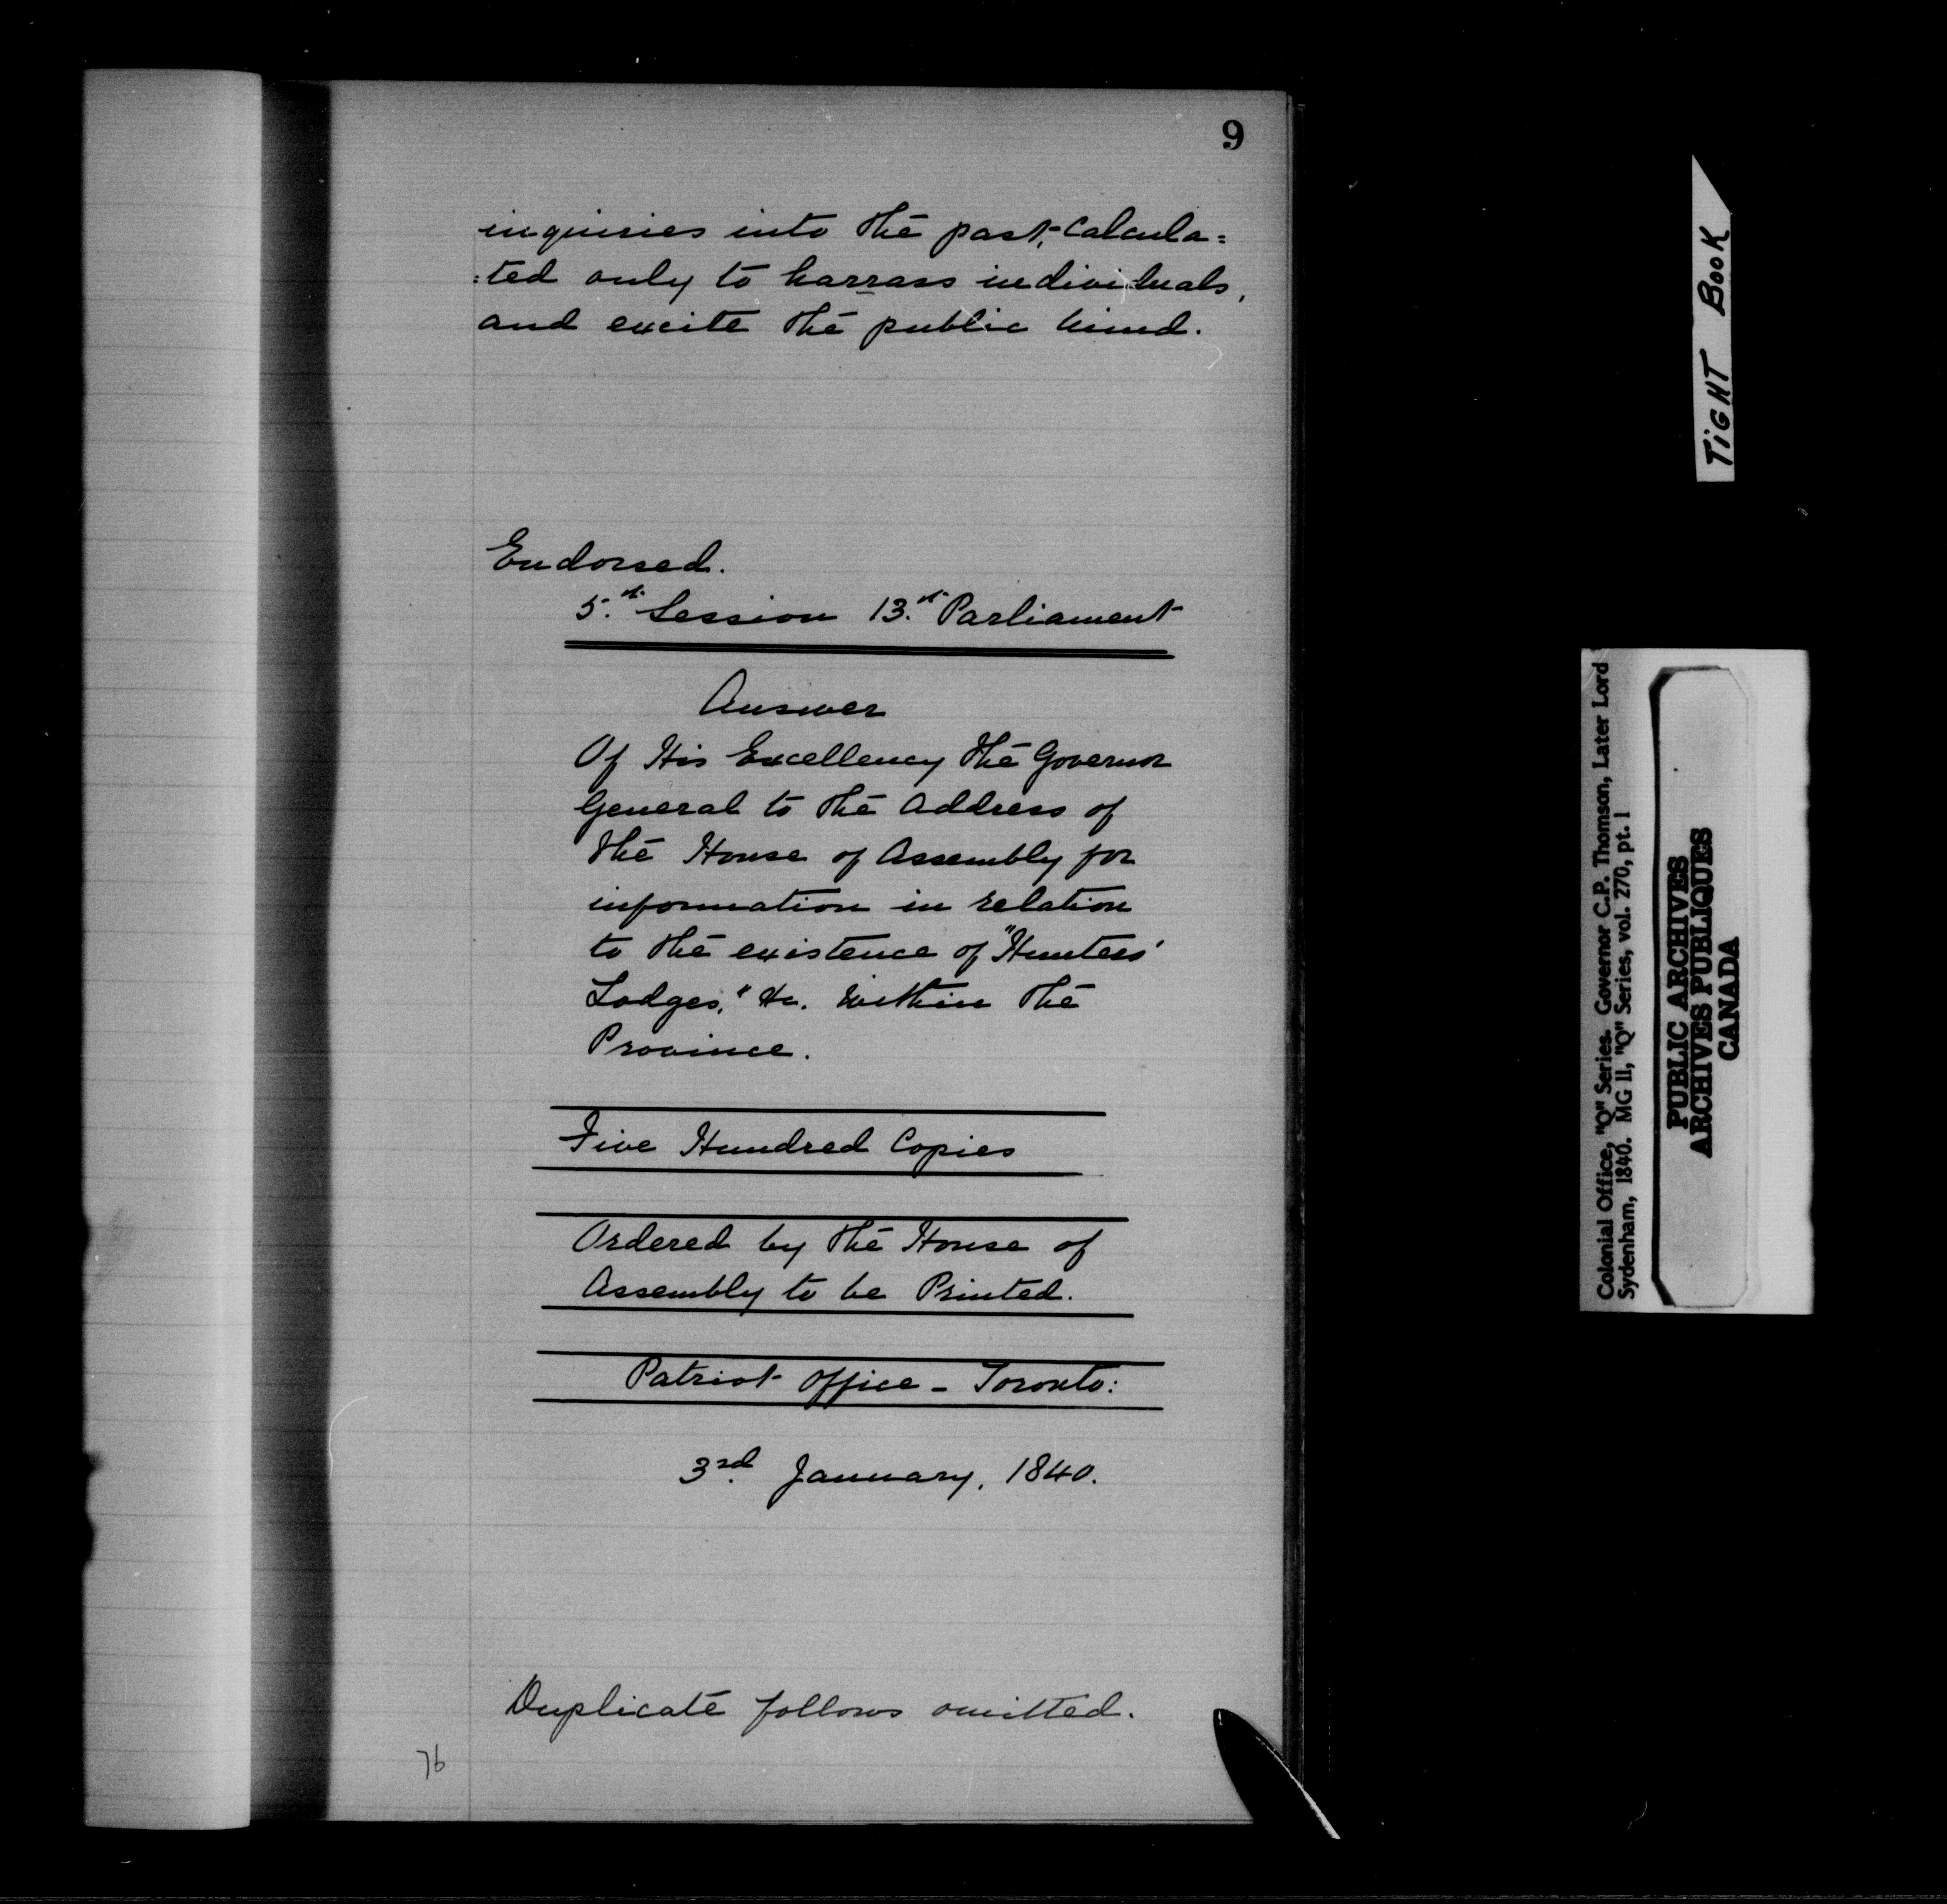 9
inquiries into the past,- calcula=
:ted only to harrass individuals,
and excite the public mind.
Endorsed.
5.th Session 13.th Parliament
Answer
Of His Excellency the Governor
General to the Address of
the House of Assembly for
information in relation
to the existence of "Hunters'
Lodges," &c. within the
Province.
Five Hundred Copies
Ordered by the House of
Assembly to be Printed.
Patriot Office - Toronto:
3rd. January, 1840.
Duplicate follows omitted.
76
TIGHT BOOK
Colonial Office, "Q" Series. Governor C.P. Thomson, Later Lord
Sydenham, 1840. MG 11, "Q" Series, vol. 270, pt. 1
PUBLIC ARCHIVES
ARCHIVES PUBLIQUES
CANADA